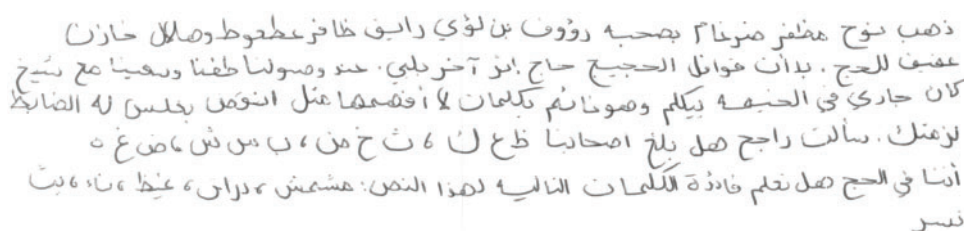 ذهب نوح مظفر ضرغام بصحبه رؤوف بن لؤي رايق ظافر عطعوط وهلال خازن
عفيف للحج. بدأت قوافل الحجيج حاج إثر آخر يلبي. عند وصولنا طفنا وسعينا مع شيخ
كان جاري في الخيمه يتكلم وهو نائم بكلمات لا أفهمها مثل انوض يجلس له الضابط
لزعتك. سألت راجح هل بلغ اصحابنا ظ ع ك ، ث خ ص ، ب س ش ، ض غ ه
أننا في الحج هل تعلم فائدة الكلمات التاليه لهذا النص: مشمش ، دراق ، غيظ ، ناء ، بث
نسر